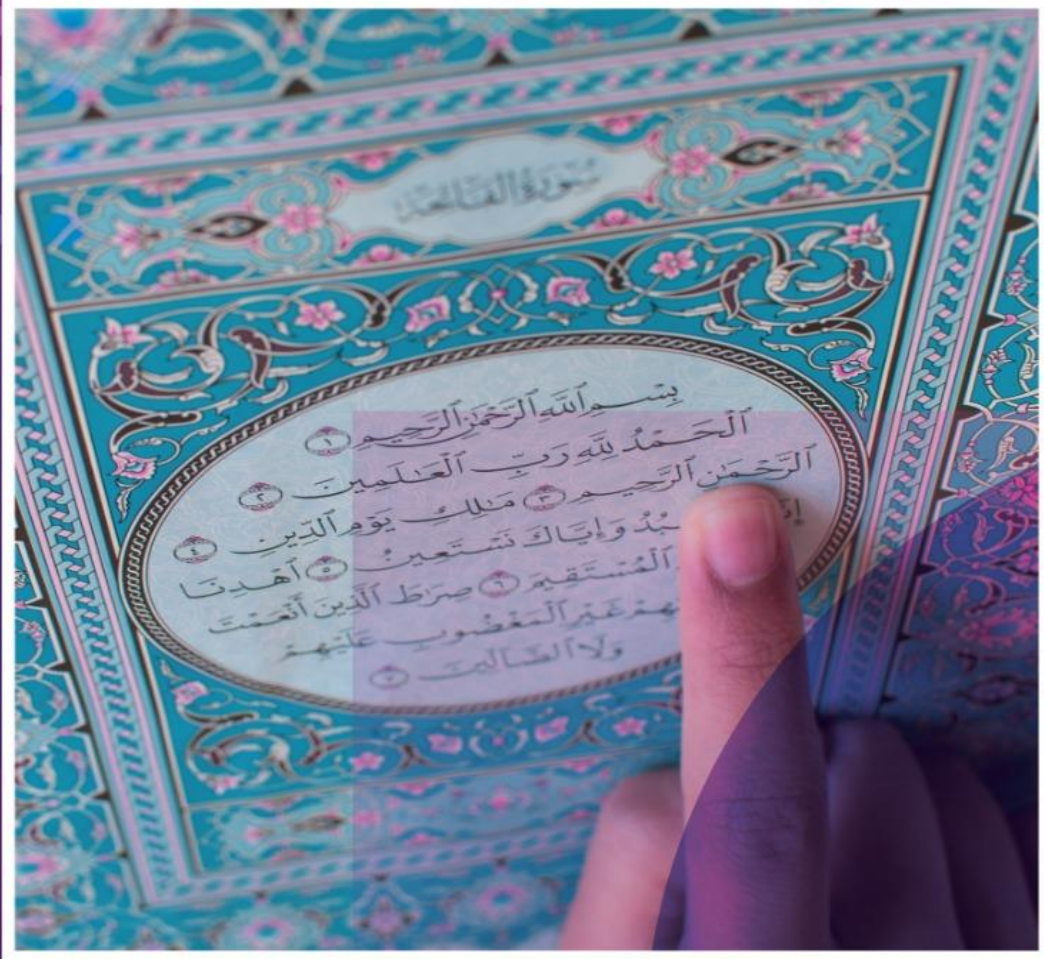 سُورَةُ الفَاتِحَة
بِسْمِ ٱللَّهِ ٱلرَّحْمَٰنِ ٱلرَّحِيمِ ١
ٱلْحَمْدُ لِلَّهِ رَبِّ ٱلْعَٰلَمِينَ ٢
ٱلرَّحْمَٰنِ ٱلرَّحِيمِ ٣ مَٰلِكِ يَوْمِ ٱلدِّينِ ٤
وَإِيَّاكَ نَسْتَعِينُ ٥ ٱهْدِنَا
ٱلْمُسْتَقِيمَ ٦ صِرَٰطَ ٱلَّذِينَ أَنْعَمْتَ
غَيْرِ ٱلْمَغْضُوبِ عَلَيْهِمْ
وَلَا ٱلضَّآلِّينَ ٧